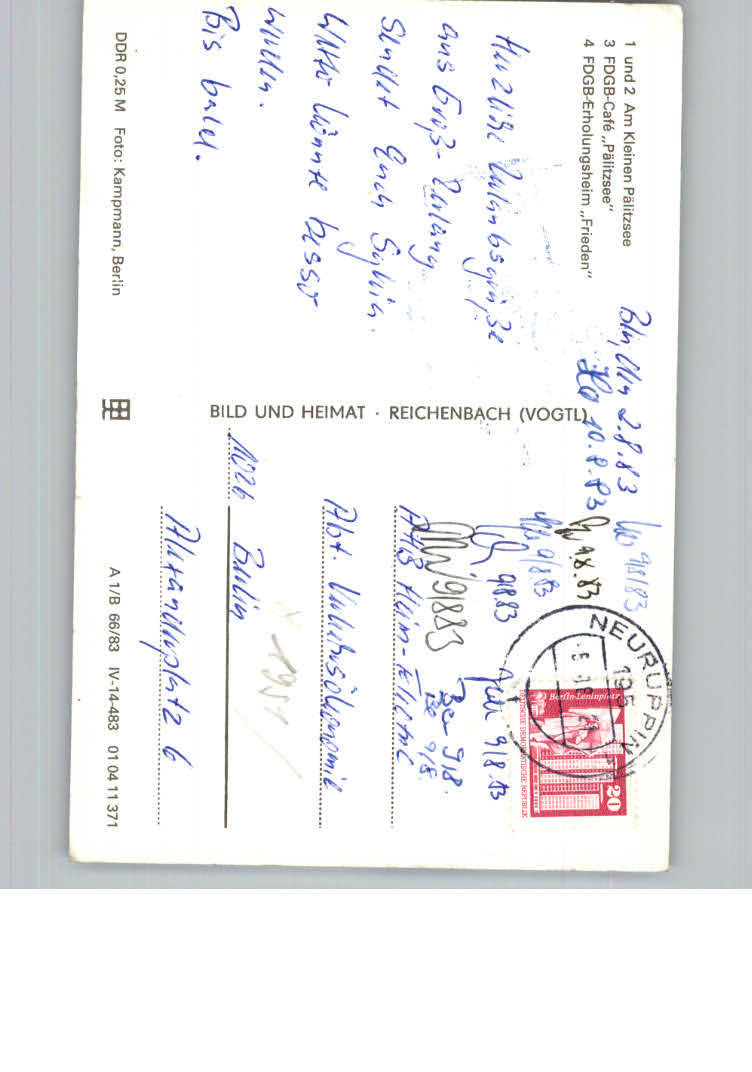 1 und 2 Am Kleinen Pälitzsee
3 FDGB-Café „Pälitzsee"
4 FDGB-Erholungsheim „Frieden"
Herzliche Urlaubsgrüße
aus Groß-
sendet Euch Sylvia.
Wetter könnte besser
werden.
Bis bald.
DDR 0,25 M Foto: Kampmann, Berlin
BILD UND HEIMAT · REICHENBACH (VOGTL)
Bln, 2.8.83
10.8.83
9/8/83
9.8.83
9/8/83
9.8.83
9/8/83
9/8.
9/8.
9/8.83
NEURUPPIN
195
Berlin-Leninplatz
DEUTSCHE DEMOKRATISCHE REPUBLIK
20
AHB Heim-Electric
Abt.
1026 Berlin
Alexanderplatz 6
A 1/B 66/83 IV-14-483 01 04 11 371